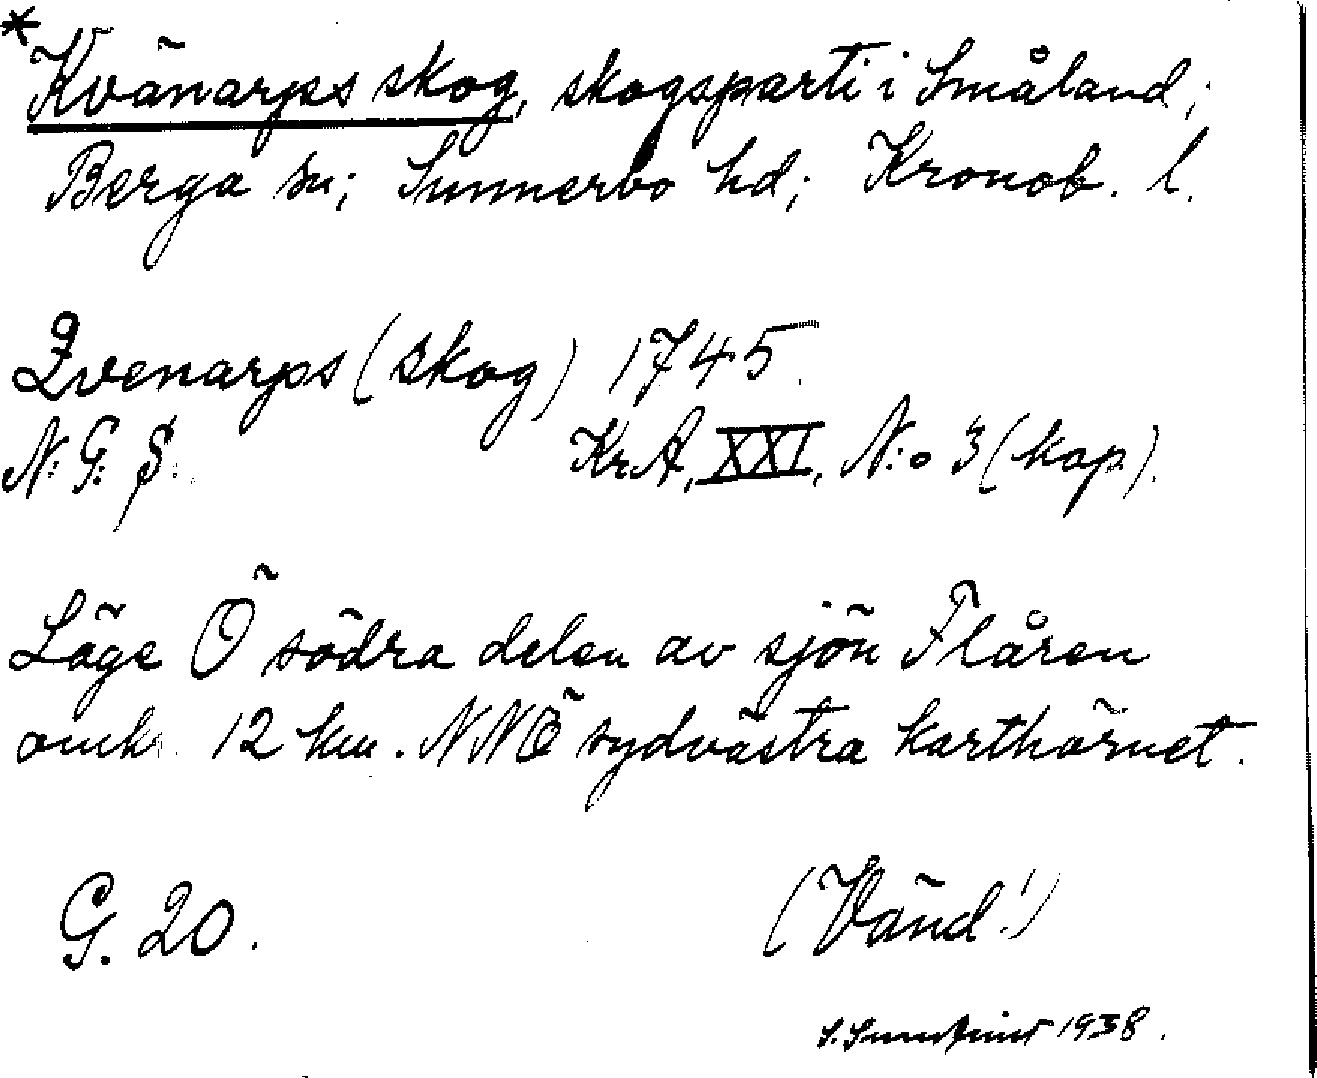 *Kvänarps skog, skogsparti i Småland;
Berga sn; Sunnerbo hd; Kronob. l.
Qvenarps (skog) 1745.
N: G: S: KrA, XXI, N:o 3 (kop).
Läge Ö södra delen av sjön Flåren
omkr. 12 km. NNÖ sydvästra karthörnet.
G. 20. (Vänd!)
1938.